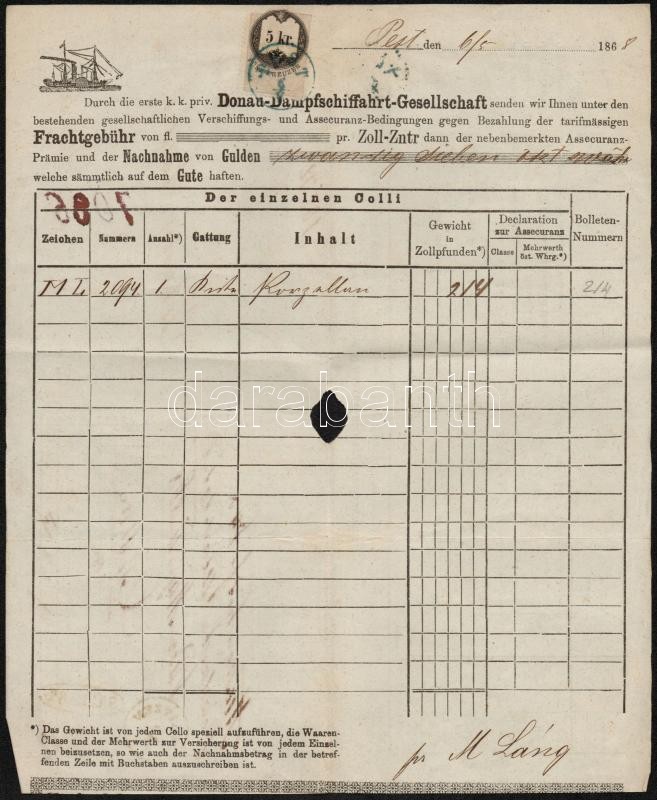 5 kr.
Pest den 6/5 1868
Durch die erste k. k. priv. Donau-Dampfschiffahrt-Gesellschaft senden wir Ihnen unter den
bestehenden gesellschaftlichen Verschiffungs- und Assecuranz-Bedingungen gegen Bezahlung der tarifmässigen
Frachtgebühr von fl. pr. Zoll-Zntr dann der nebenbemerkten Assecuranz-
Prämie und der Nachnahme von Gulden zwanzig sieben öst währ
welche sämmtlich auf dem Gute haften.
Der einzelnen Colli
Zeichen Nummern Anzahl*) Gattung Inhalt Gewicht in Zollpfunden*) Declaration zur Assecuranz Classe Mehrwerth öst. Whrg.*) Bolleten-Nummern
ML 2094 1 Kiste Porzellan 214 214
darabanth
*) Das Gewicht ist von jedem Collo speziell aufzuführen, die Waaren-
Classe und der Mehrwerth zur Versicherung ist von jedem Einzel-
nen beizusetzen, so wie auch der Nachnahmsbetrag in der betref-
fenden Zeile mit Buchstaben auszuschreiben ist.
pr M Láng